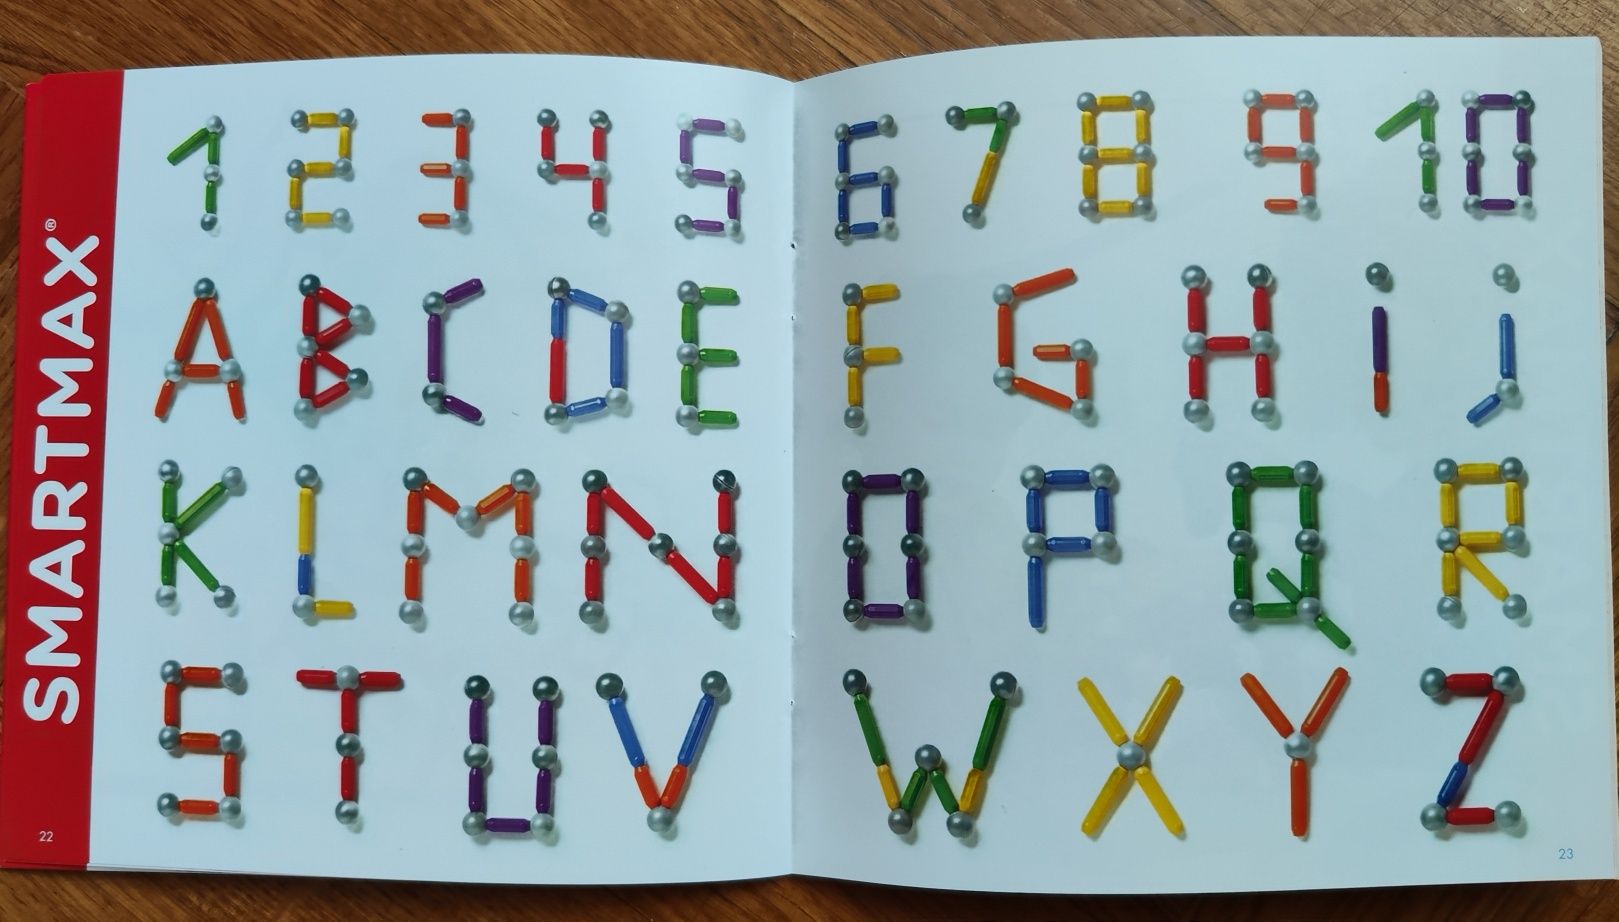 SMARTMAX®
1 2 3 4 5 6 7 8 9 10
A B C D E F G H i j
K L M N O P Q R
S T U V W X Y Z
22
23